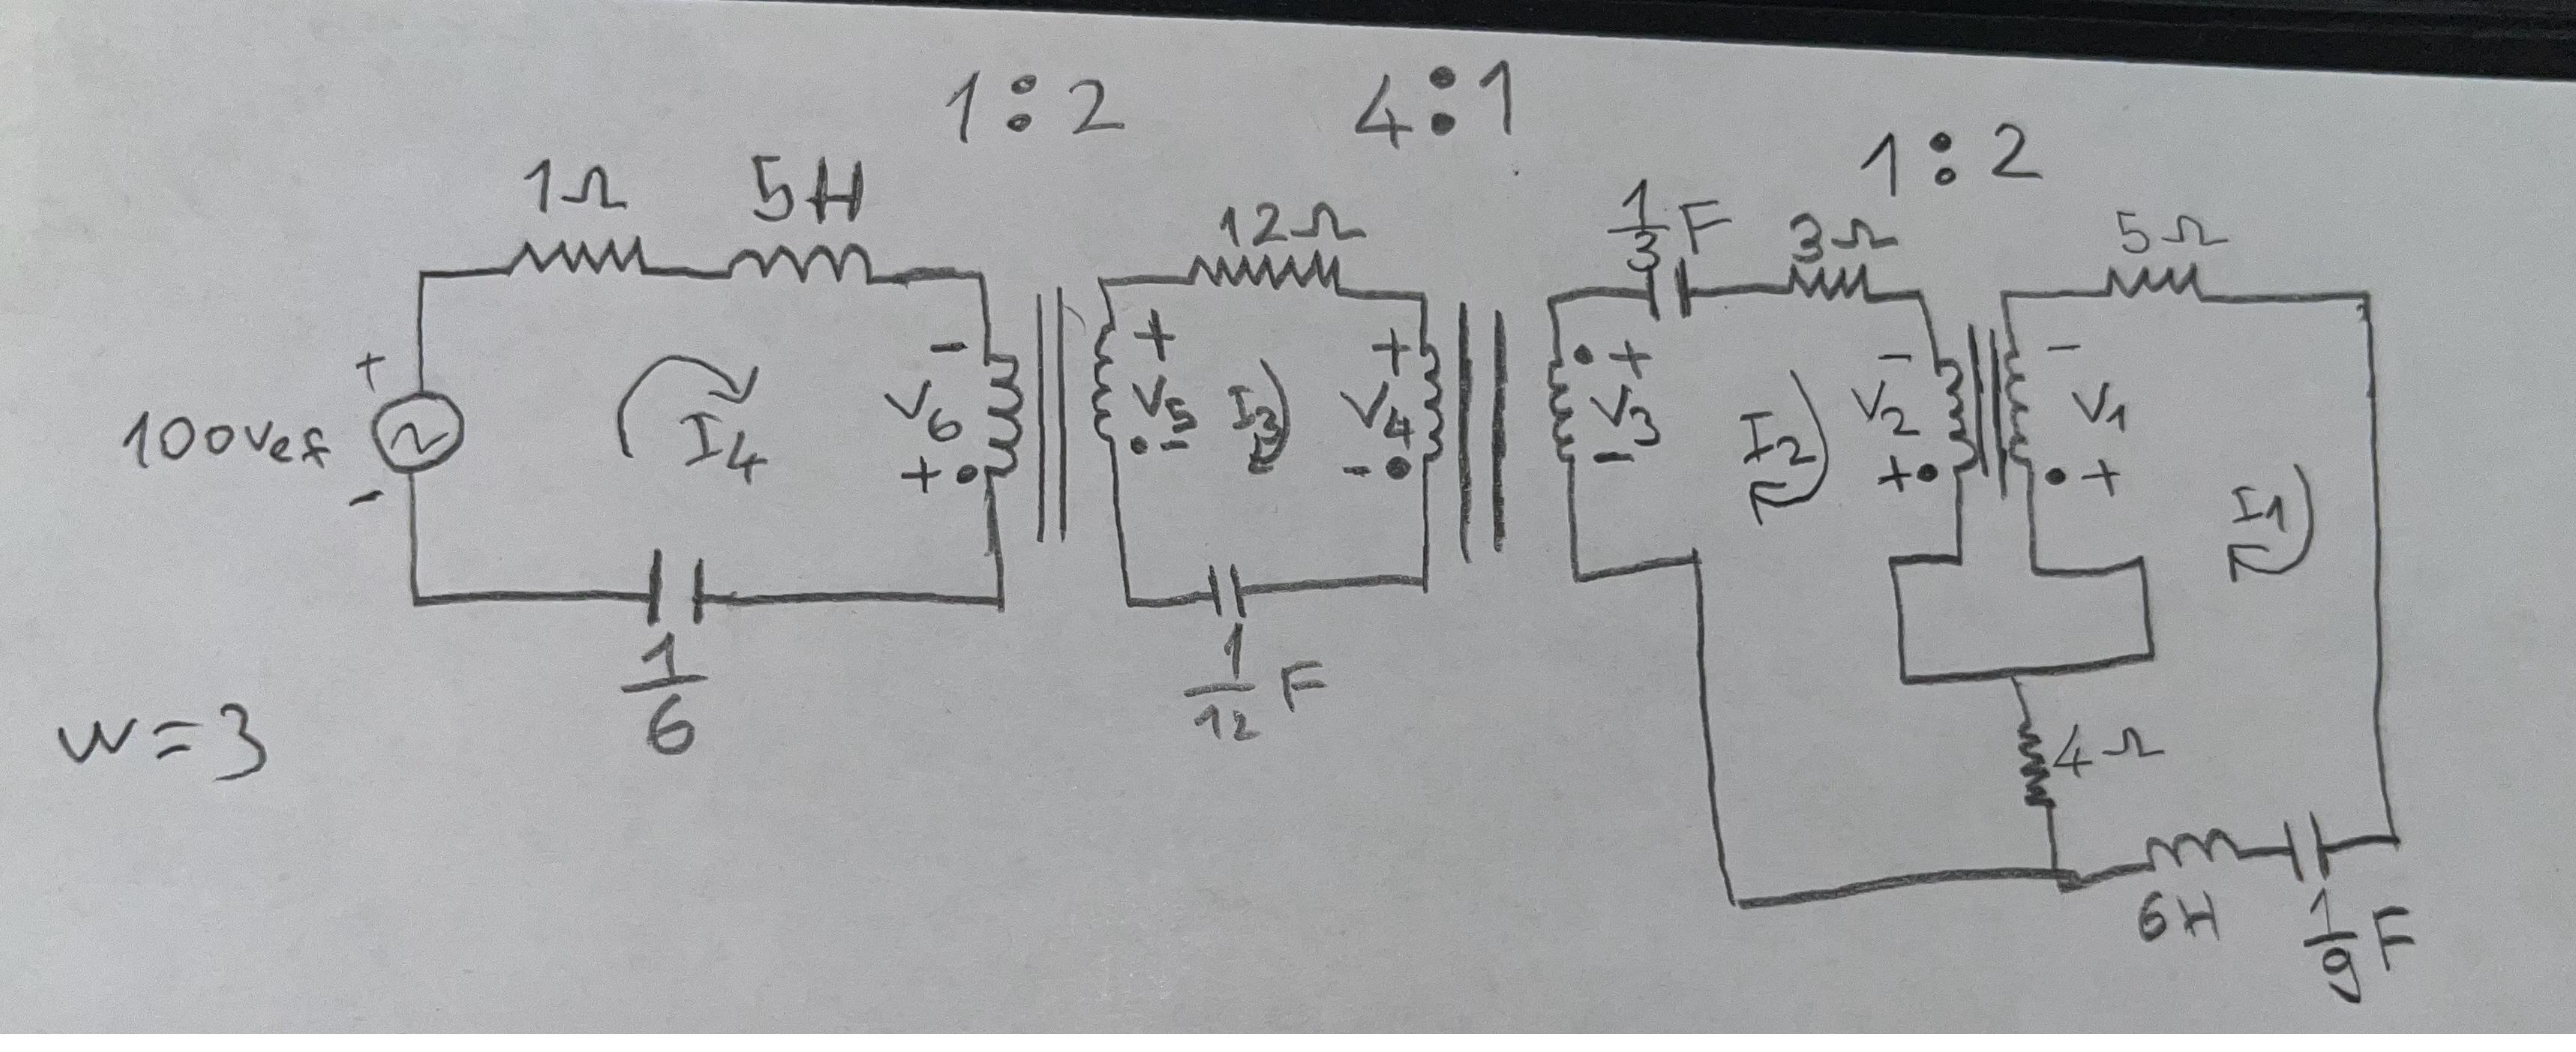 1:2 4:1 1:2
1Ω 5H 12Ω 1/3 F 3Ω 5Ω
+ - + + • + - -
100vef I4 V6 V5 I3 V4 V3 I2 V2 V1 I1
- + • • - - • - + • • +
1/6 1/12 F
w=3
4Ω
6H 1/9 F